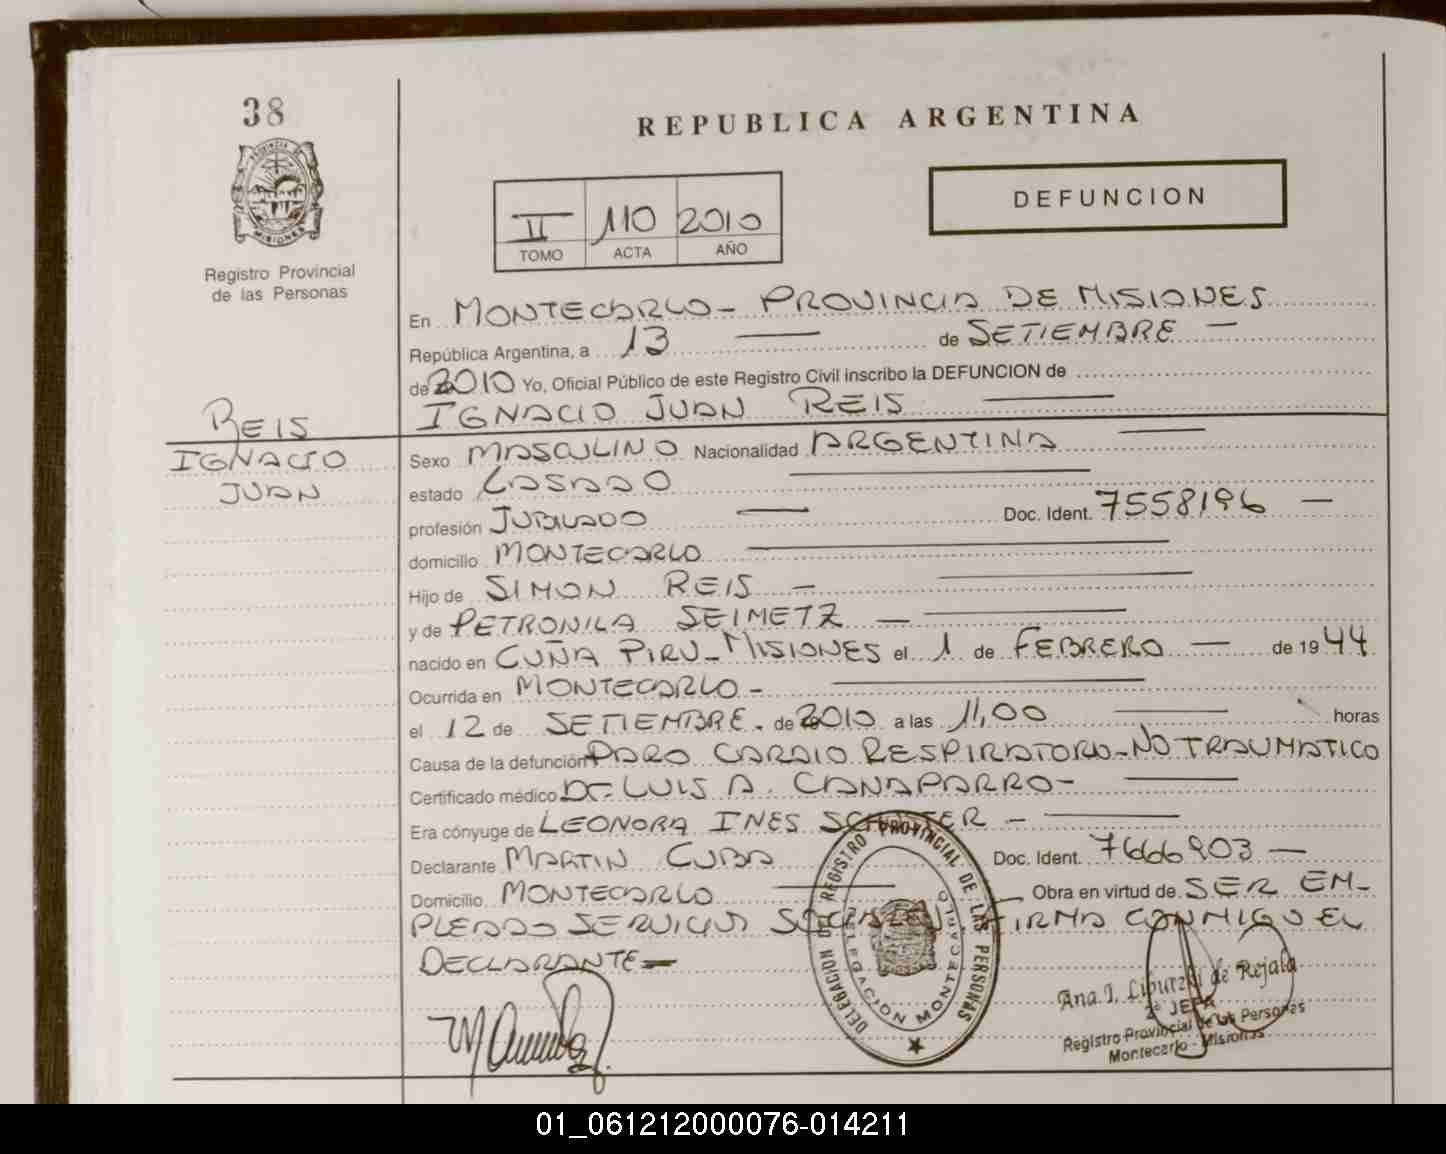 38
PROVINCIA DE
MISIONES
Registro Provincial
de las Personas
REPUBLICA ARGENTINA
II 110 2010
TOMO ACTA AÑO
DEFUNCION
En MONTECARLO - PROVINCIA DE MISIONES
República Argentina, a 13 de SETIEMBRE
de 2010 Yo, Oficial Público de este Registro Civil inscribo la DEFUNCION de
IGNACIO JUAN REIS
REIS
IGNACIO
JUAN
Sexo MASCULINO Nacionalidad ARGENTINA
estado CASADO
profesión JUBILADO Doc. Ident. 7558196
domicilio MONTECARLO
Hijo de SIMON REIS
y de PETRONILA SEIMETZ
nacido en CUÑA PIRU - MISIONES el 1 de FEBRERO de 1944
Ocurrida en MONTECARLO -
el 12 de SETIEMBRE. de 2010 a las 11,00 horas
Causa de la defunción PARO CARDIO RESPIRATORIO - NO TRAUMATICO
Certificado médico Dr. LUIS A. CANAPARRO -
Era cónyuge de LEONORA INES
Declarante MARTIN CUBA Doc. Ident. 7666903
Domicilio MONTECARLO Obra en virtud de SER EM-
PLEADO SERVICIOS SOCIALES. FIRMA CONMIGO EL
DECLARANTE =
DELEGACION DE REGISTRO PROVINCIAL DE LAS PERSONAS
DELEGACION MONTECARLO
Ana I. de Rejala
2º JEFA
Registro Provincial de las Personas
Montecarlo - Misiones
01_061212000076-014211